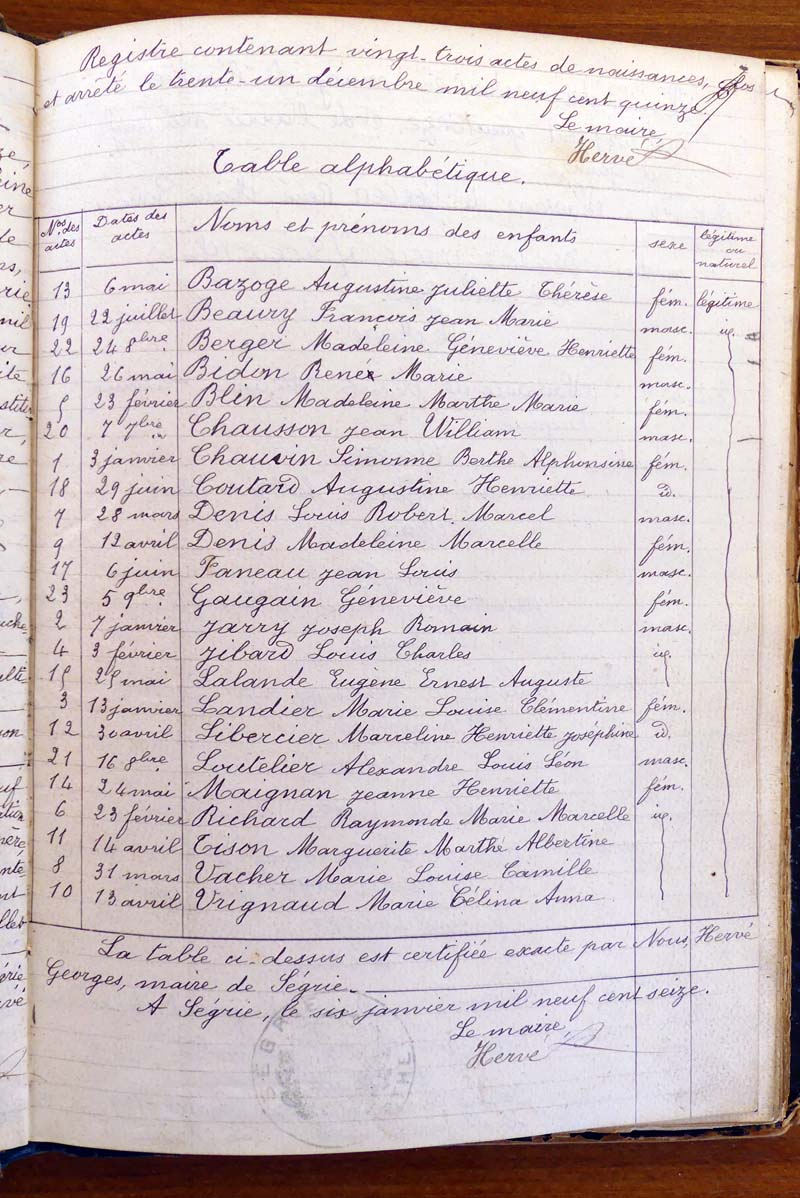 Registre contenant vingt-trois actes de naissances, clos
et arrêté le trente-un décembre mil neuf cent quinze.
Le maire,
Hervé
Table alphabétique.
Nos des actes Dates des actes Noms et prénoms des enfants sexe légitime ou naturel
13 6 mai Bazoge Augustine Juliette Thérèse fém. légitime
19 22 juillet Beaury François Jean Marie masc. id.
22 24 8bre Berger Madeleine Géneviève Henriette fém.
16 26 mai Bidon René Marie masc.
5 23 février Blin Madeleine Marthe Marie fém.
20 7 7bre Chausson Jean William masc.
1 3 janvier Chauvin Simonne Berthe Alphonsine fém.
18 29 juin Coutard Augustine Henriette id.
7 28 mars Denis Louis Robert Marcel masc.
9 12 avril Denis Madeleine Marcelle fém.
17 6 juin Faneau Jean Louis masc.
23 5 9bre Gaugain Géneviève fém.
2 7 janvier Jarry Joseph Romain masc.
4 3 février Jibard Louis Charles id.
15 25 mai Lalande Eugène Ernest Auguste
3 13 janvier Landier Marie Louise Clémentine fém.
12 30 avril Libercier Marceline Henriette Joséphine id.
21 16 8bre Loutelier Alexandre Louis Léon masc.
14 24 mai Maignan Jeanne Henriette fém.
6 23 février Richard Raymonde Marie Marcelle id.
11 14 avril Tison Marguerite Marthe Albertine
8 31 mars Vacher Marie Louise Camille
10 13 avril Vrignaud Marie Célina Anna
La table ci-dessus est certifiée exacte par Nous, Hervé
Georges, maire de Ségrie.
A Ségrie, le six janvier mil neuf cent seize.
Le maire,
Hervé